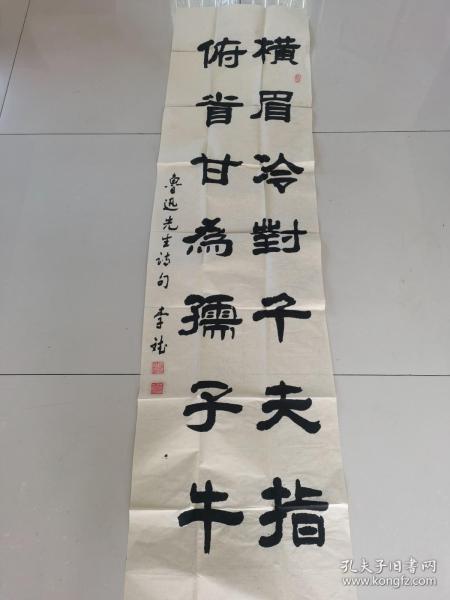 橫眉冷對千夫指
俯首甘為孺子牛
魯迅先生诗句 李
孔夫子旧书网
www.kongfz.com